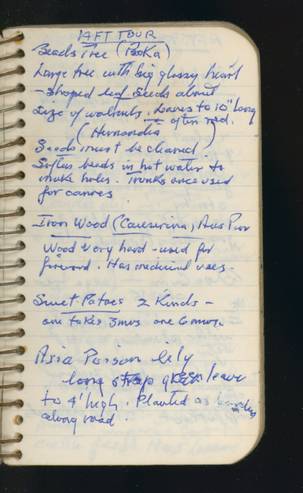 AFT TOUR
Beads Tree (Poka)
Large tree with big glossy heart
-shaped leaf. Seeds about
size of walnuts. Leaves to 10" long
often red.
(Hernandia)
Seeds must be cleaned
Softens beads in hot water to
make holes. Trunks once used
for canoes
Iron Wood (Causurina)
Wood very hard - used for
. Has medicinal uses.
Sweet Patoes 2 Kinds -
one takes 3 mos one 6 mos.
Asia Poison lily
long strap green leave
to 4' high. Planted as
along road.